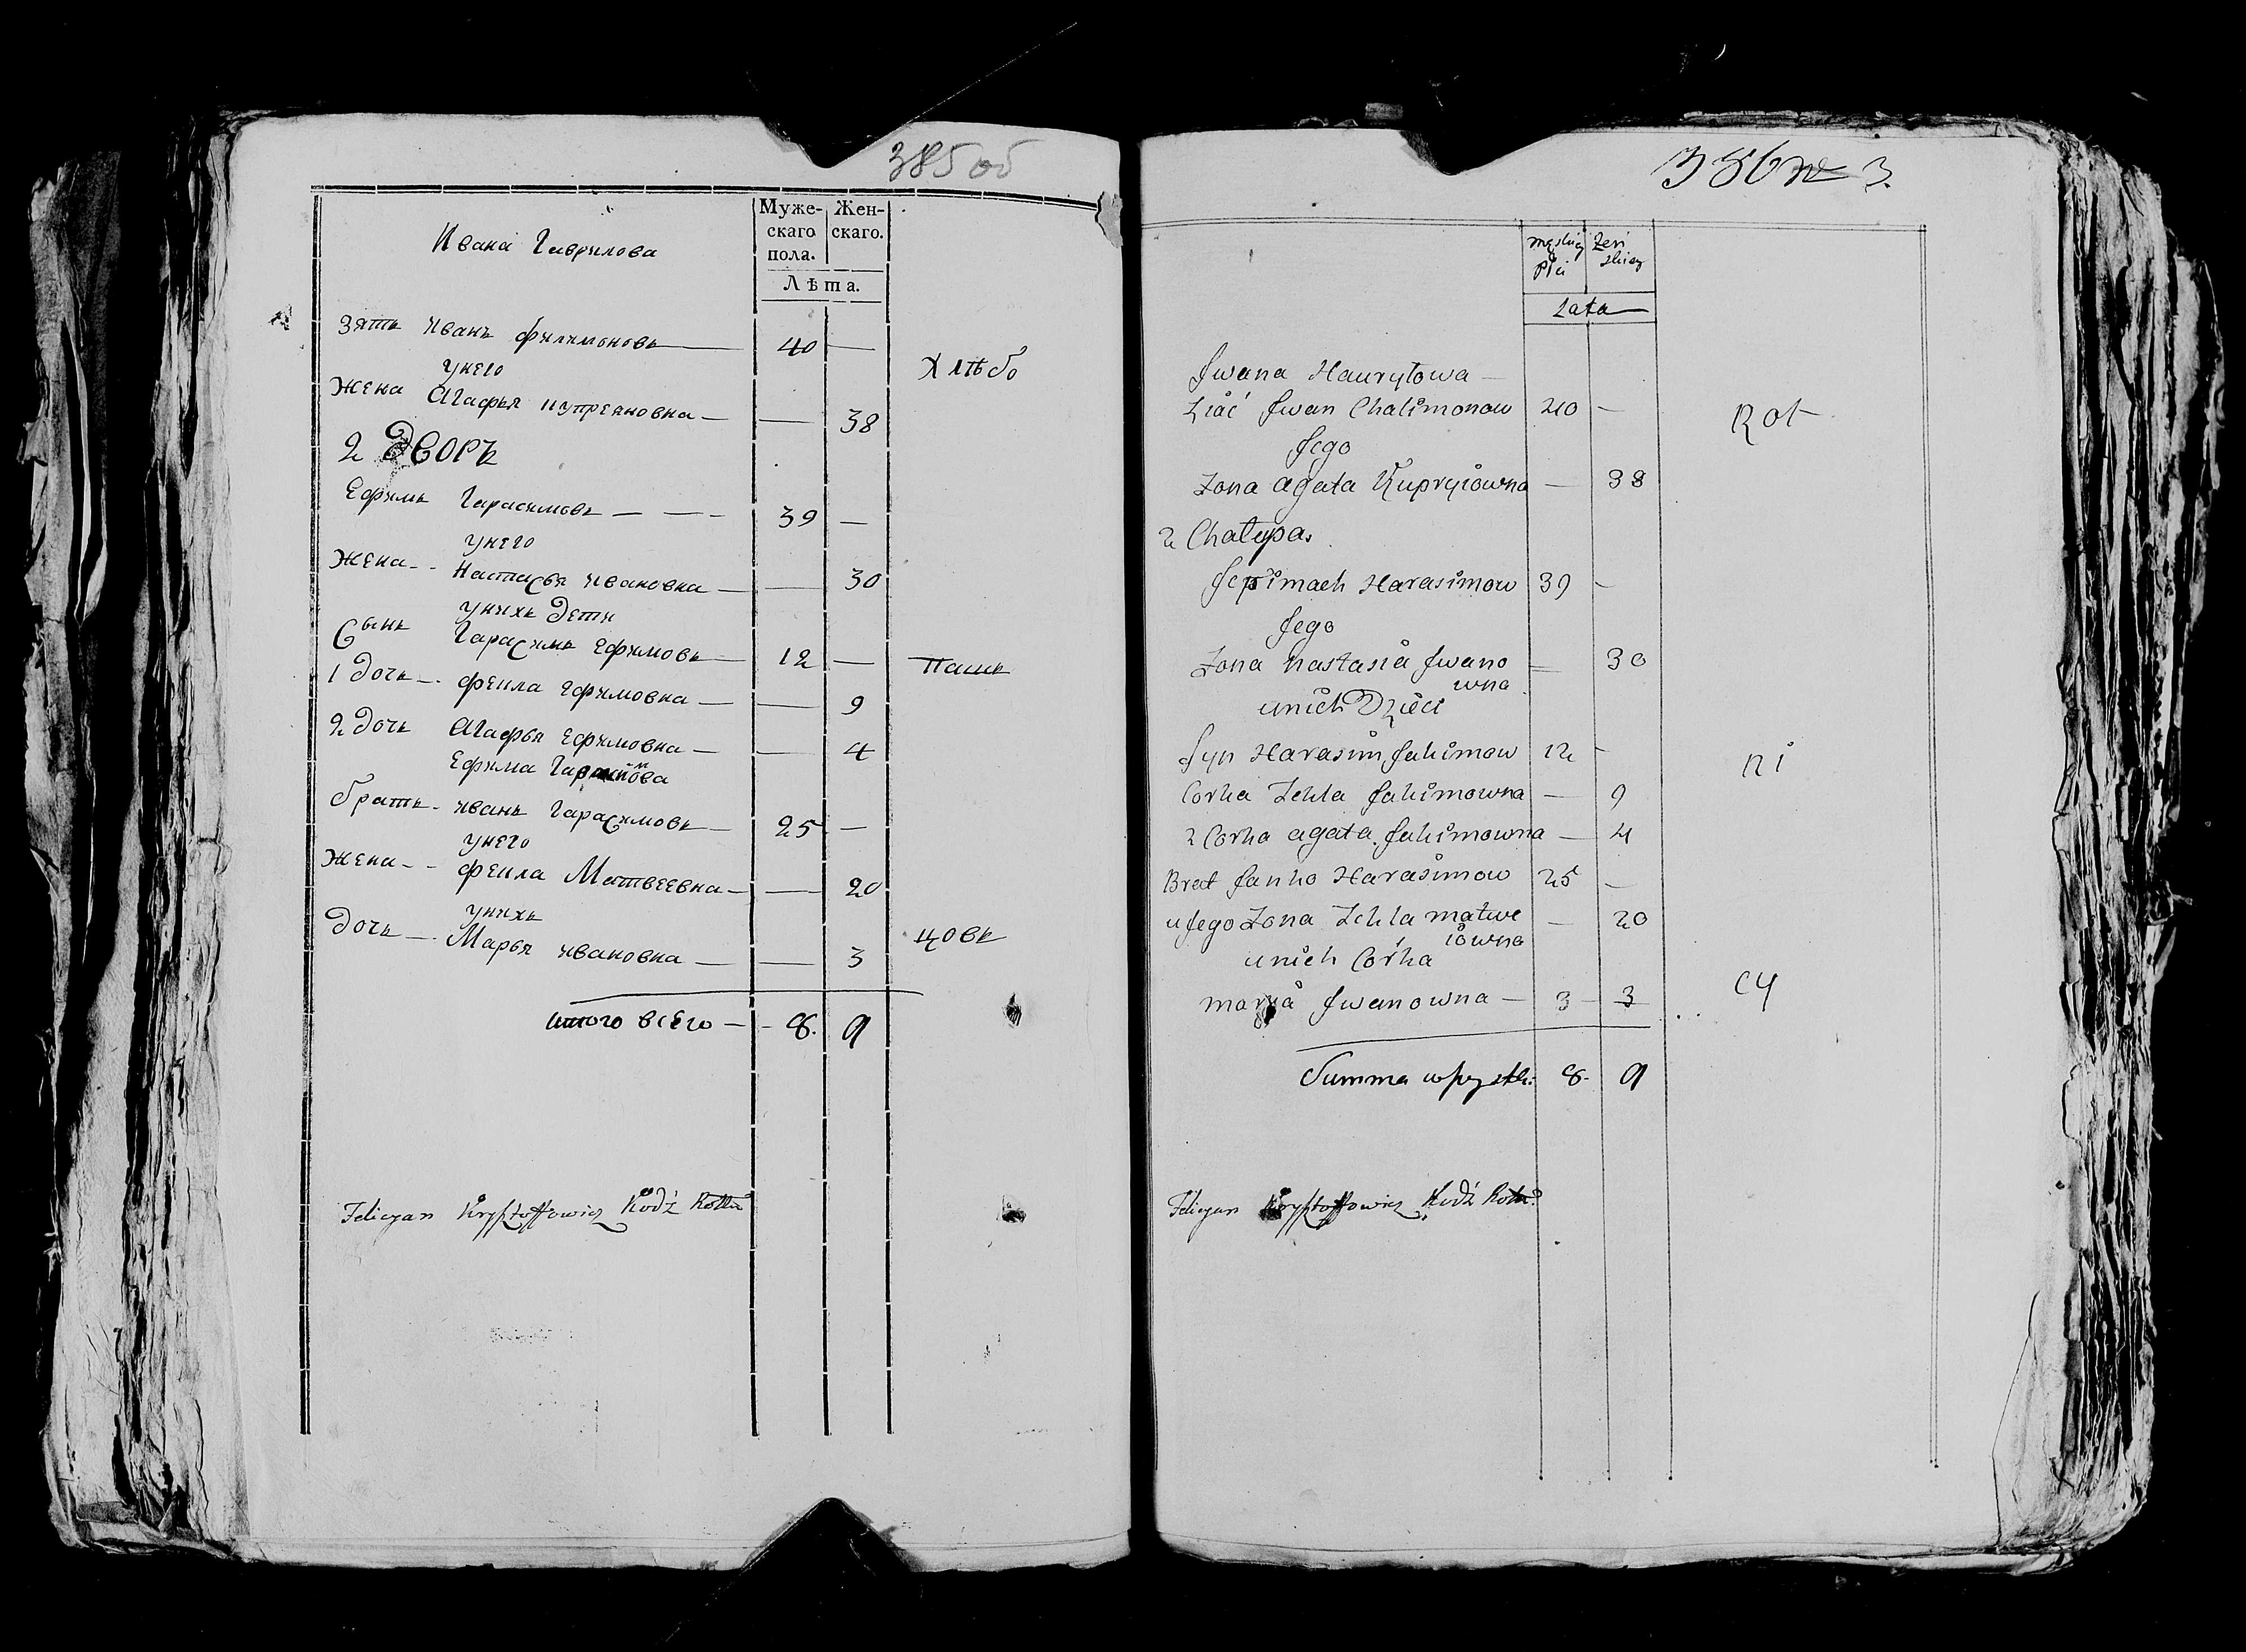 385 об
Ивана Гаврилова
Муже-
скаго
пола.
Жен-
скаго.
Лѣта.
Зять Иванъ Филимоновъ — 40 —
Хлѣбо
унего
Жена Агафья Купреяновна — — 38
2 Дворъ
Ефимъ Гарасимовъ — — — 39 —
унего
Жена - - Настасья Ивановна — — 30
унихъ дети
Сынъ Гарасимъ Ефимовъ — 12 —
Паш
1 Дочь — Фекла Ефимовна — — 9
2 Дочь Агафья Ефимовна — — 4
Ефима
братъ - Иванъ Гарасимовъ — 25 —
унего
Жена - - Фекла Матвеевна — — 20
унихъ
Дочь — Марья Ивановна — — 3
цовъ
итого всего — 8. 9
Felicyan Krysztoffowicz
386 3.
męskiey
Płci
żeń
skiey
Lata
Jwana Hauryłowa —
Ziać Jwan Chalimonow 40 —
Rol
Jego
Zona agata Kupryiowna — 38
2 Chałupa.
Jefimach Harasimow 39 —
Jego
Zona nastasia Jwano — 30
wna
unich Dzieci
Syn Harasim Jakimow 12 —
ni
Corka Tekla Jakimowna — 9
2 Corka agata Jakimowna — 4
Brat Janko Harasimow 25 —
u Jego Zona Tekla matwe — 20
iowna
unich Córka
marya Jwanowna — 3 — 3
cy
Summa wszystk: 8. 9
Felicyan Krysztoffowicz